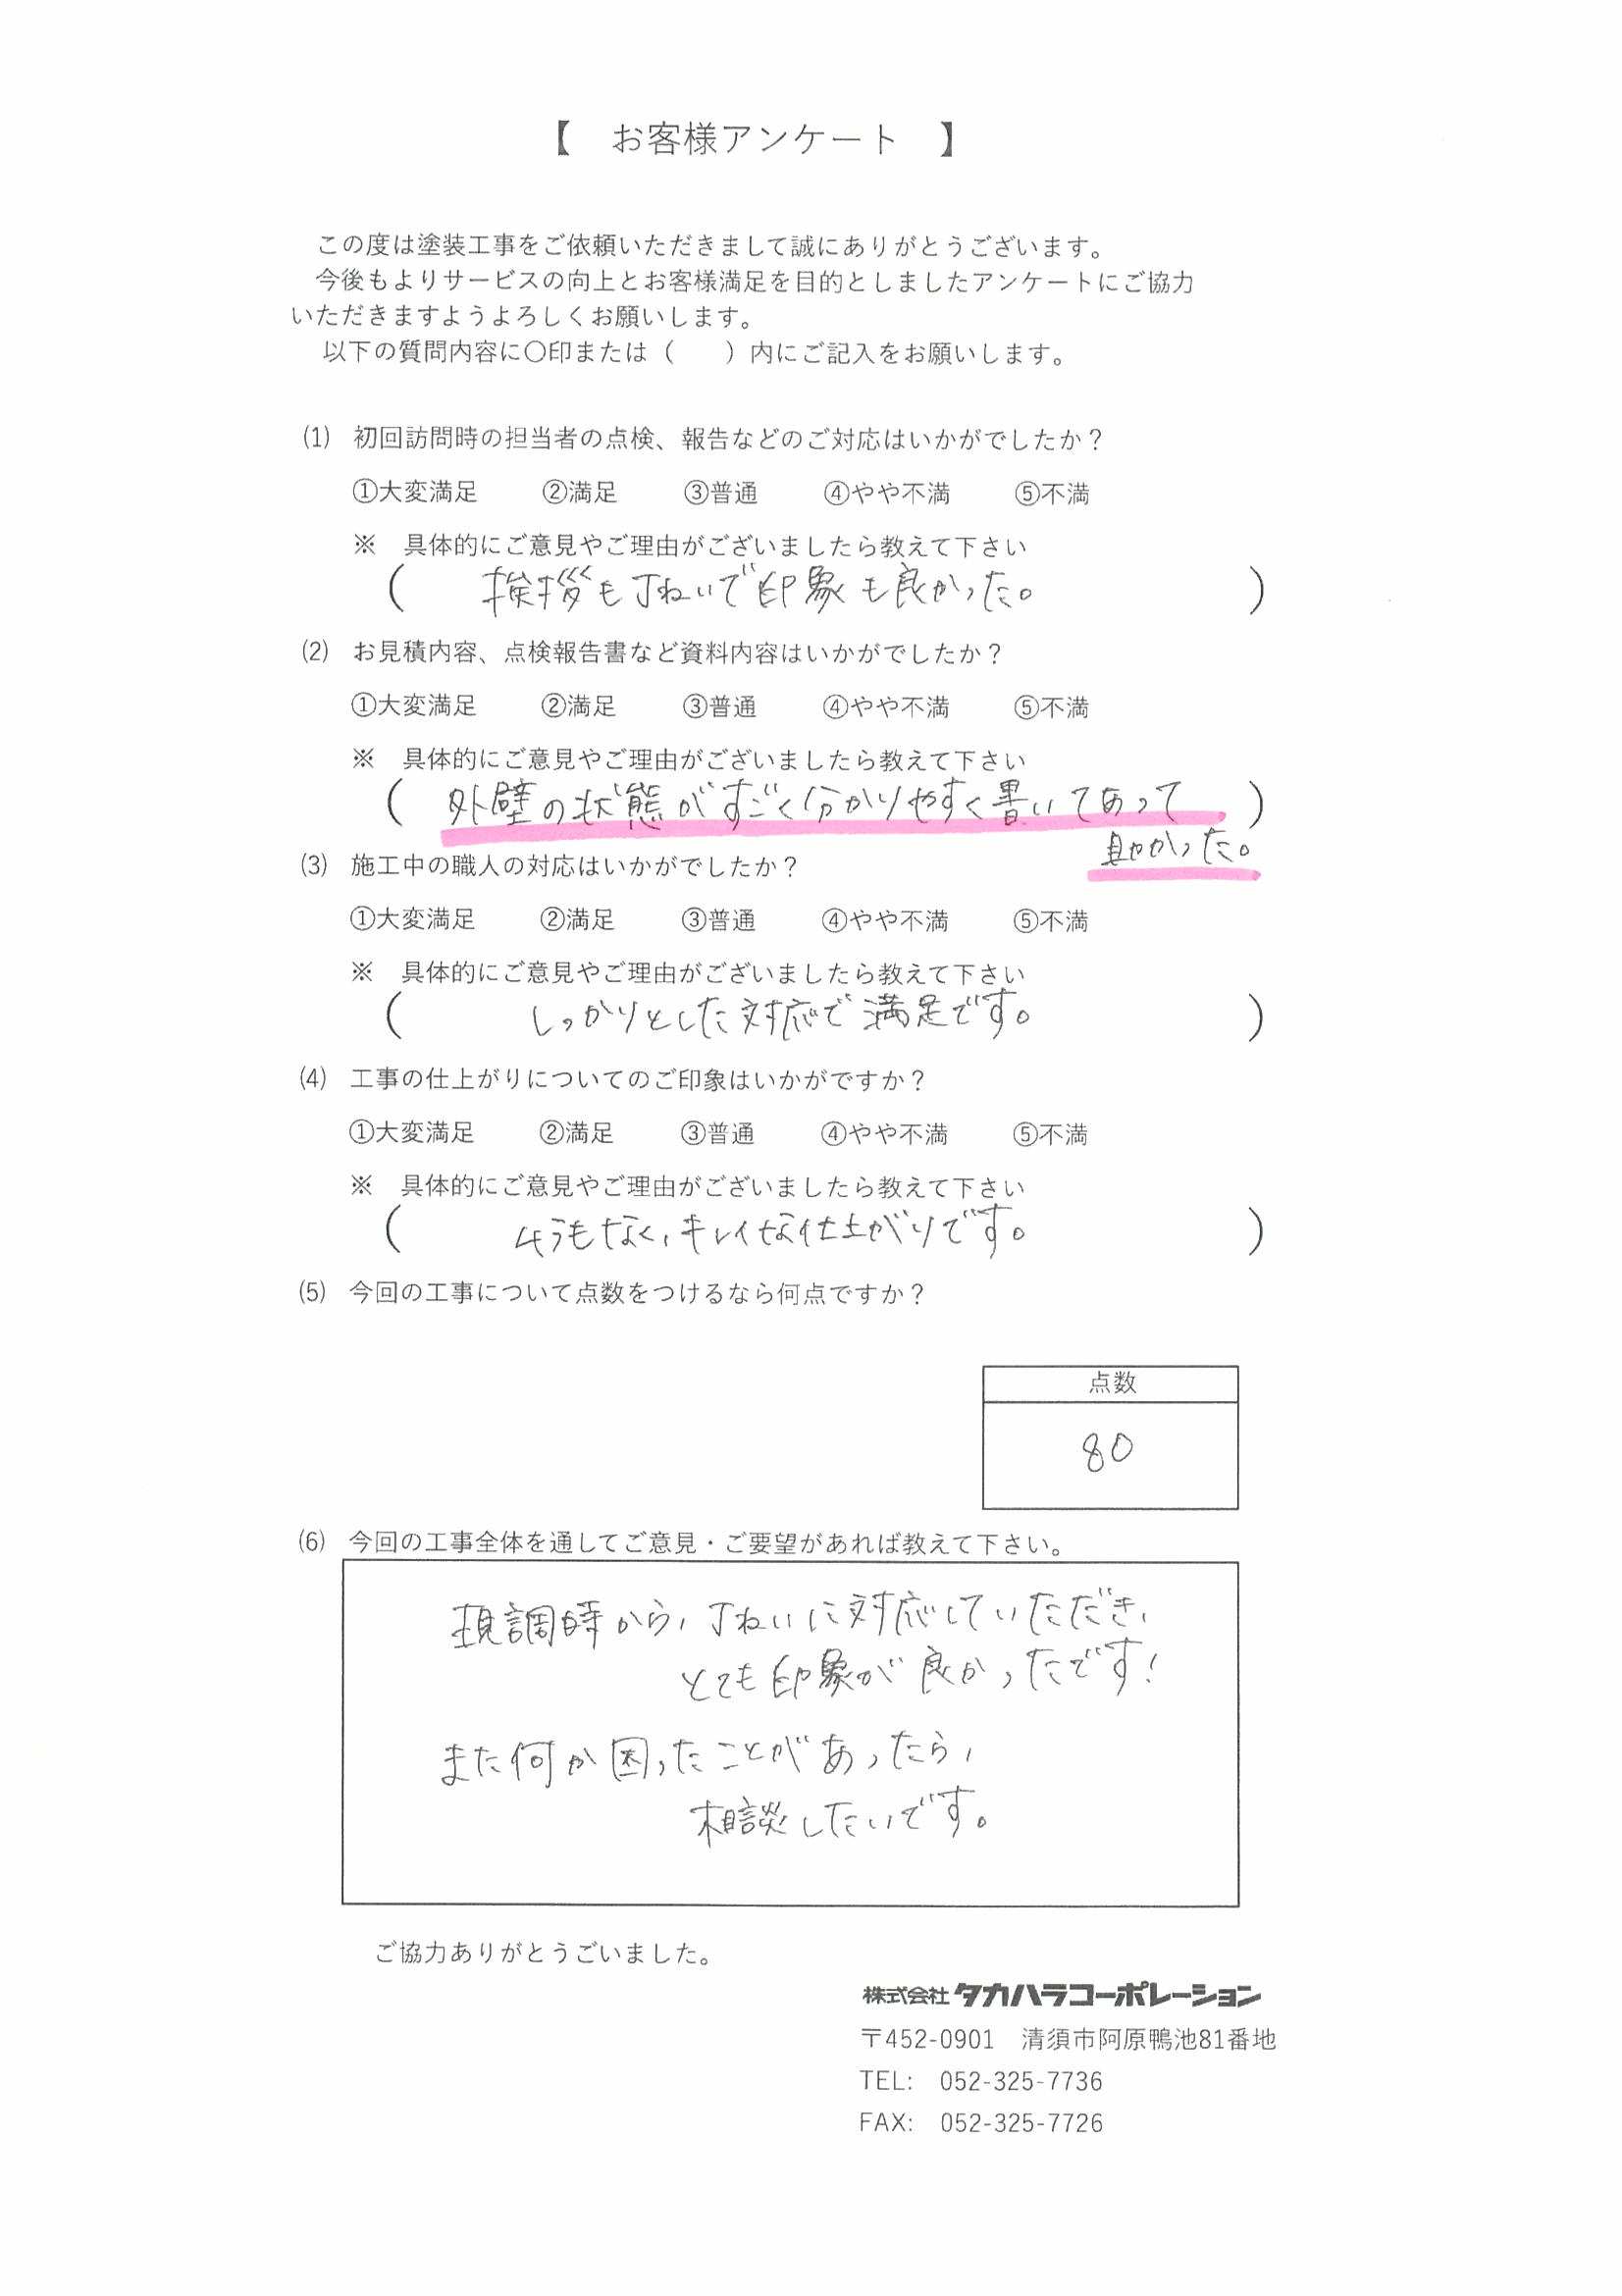 【　お客様アンケート　】
この度は塗装工事をご依頼いただきまして誠にありがとうございます。
今後もよりサービスの向上とお客様満足を目的としましたアンケートにご協力
いただきますようよろしくお願いします。
以下の質問内容に〇印または（　　）内にご記入をお願いします。
(1)　初回訪問時の担当者の点検、報告などのご対応はいかがでしたか？
①大変満足　②満足　③普通　④やや不満　⑤不満
※　具体的にご意見やご理由がございましたら教えて下さい
（　挨拶も丁ねいで印象も良かった。　）
(2)　お見積内容、点検報告書など資料内容はいかがでしたか？
①大変満足　②満足　③普通　④やや不満　⑤不満
※　具体的にご意見やご理由がございましたら教えて下さい
（　外壁の状態がすごく分かりやすく書いてあって　）
助かった。
(3)　施工中の職人の対応はいかがでしたか？
①大変満足　②満足　③普通　④やや不満　⑤不満
※　具体的にご意見やご理由がございましたら教えて下さい
（　しっかりとした対応で満足です。　）
(4)　工事の仕上がりについてのご印象はいかがですか？
①大変満足　②満足　③普通　④やや不満　⑤不満
※　具体的にご意見やご理由がございましたら教えて下さい
（　もなく、キレイな仕上がりです。　）
(5)　今回の工事について点数をつけるなら何点ですか？
点数
80
(6)　今回の工事全体を通してご意見・ご要望があれば教えて下さい。
現調時から、丁ねいに対応していただき、
とても印象が良かったです！
また何か困ったことがあったら、
相談したいです。
ご協力ありがとうごいました。
株式会社 タカハラコーポレーション
〒452-0901　清須市阿原鴨池81番地
TEL:　052-325-7736
FAX:　052-325-7726